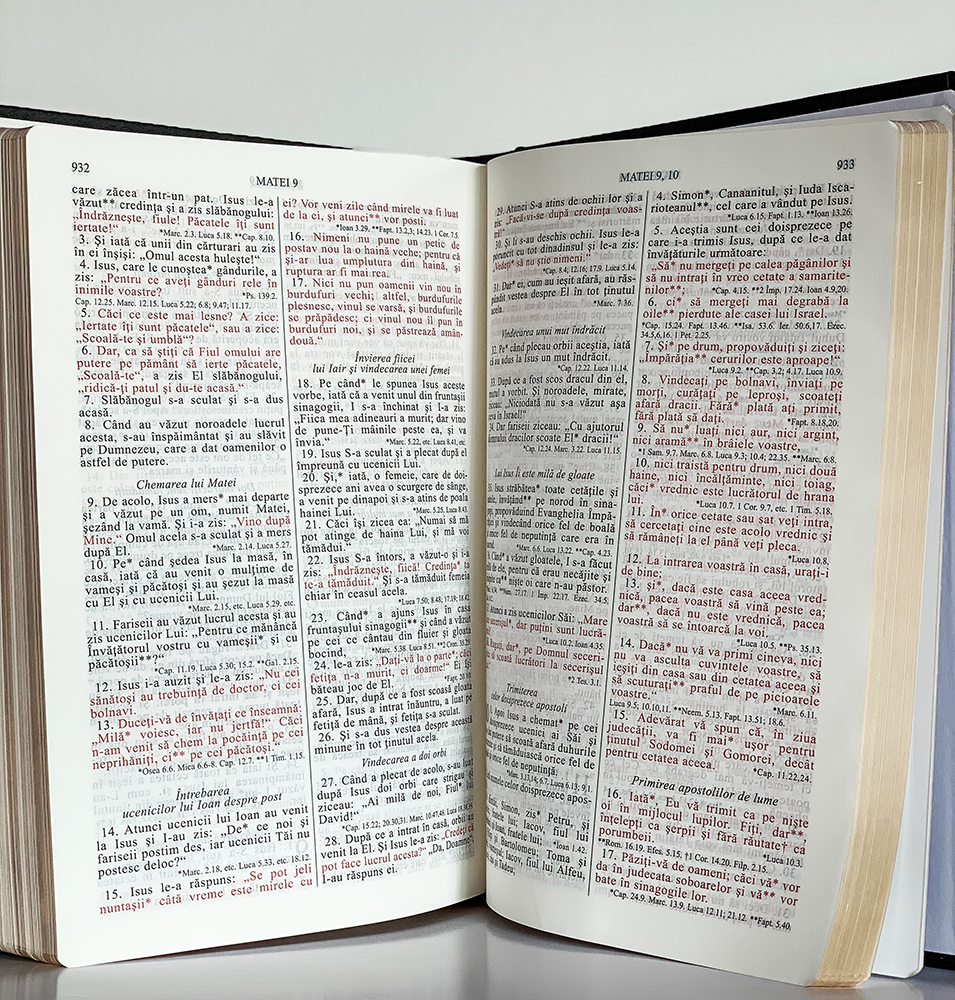 932
MATEI 9
care zăcea într-un pat. Isus le-a
văzut** credința și a zis slăbănogului:
„Îndrăznește, fiule! Păcatele îți sunt
iertate!“
*Marc. 2.3. Luca 5.18. **Cap. 8.10.
3. Și iată că unii din cărturari au zis
în ei înșiși: „Omul acesta hulește!“
4. Isus, care le cunoștea* gândurile, a
zis: „Pentru ce aveți gânduri rele în
inimile voastre?
*Ps. 139.2.
Cap. 12.25. Marc. 12.15. Luca 5.22; 6.8; 9.47; 11.17.
5. Căci ce este mai lesne? A zice:
„Iertate îți sunt păcatele“, sau a zice:
„Scoală-te și umblă“?
6. Dar, ca să știți că Fiul omului are
putere pe pământ să ierte păcatele,
„Scoală-te“, a zis El slăbănogului,
„ridică-ți patul și du-te acasă.“
7. Slăbănogul s-a sculat și s-a dus
acasă.
8. Când au văzut noroadele lucrul
acesta, s-au înspăimântat și au slăvit
pe Dumnezeu, care a dat oamenilor o
astfel de putere.
Chemarea lui Matei
9. De acolo, Isus a mers* mai departe
și a văzut pe un om, numit Matei,
șezând la vamă. Și i-a zis: „Vino după
Mine.“ Omul acela s-a sculat și a mers
după El.
*Marc. 2.14. Luca 5.27.
10. Pe* când ședea Isus la masă, în
casă, iată că au venit o mulțime de
vameși și păcătoși și au șezut la masă
cu El și cu ucenicii Lui.
*Marc. 2.15, etc. Luca 5.29, etc.
11. Fariseii au văzut lucrul acesta și au
zis ucenicilor Lui: „Pentru ce mănâncă
Învățătorul vostru cu vameșii* și cu
păcătoșii**?“
*Cap. 11.19. Luca 5.30; 15.2. **Gal. 2.15.
12. Isus i-a auzit și le-a zis: „Nu cei
sănătoși au trebuință de doctor, ci cei
bolnavi.
13. Duceți-vă de învățați ce înseamnă:
„Milă* voiesc, iar nu jertfă!“ Căci
n-am venit să chem la pocăință pe cei
neprihăniți, ci** pe cei păcătoși.“
*Osea 6.6. Mica 6.6-8. Cap. 12.7. **1 Tim. 1.15.
Întrebarea
ucenicilor lui Ioan despre post
14. Atunci ucenicii lui Ioan au venit
la Isus și I-au zis: „De* ce noi și
fariseii postim des, iar ucenicii Tăi nu
postesc deloc?“
*Marc. 2.18, etc. Luca 5.33, etc. 18.12.
15. Isus le-a răspuns: „Se pot jeli
nuntașii* câtă vreme este mirele cu
ei? Vor veni zile când mirele va fi luat
de la ei, și atunci** vor posti.
*Ioan 3.29. **Fapt. 13.2,3; 14.23. 1 Cor. 7.5.
16. Nimeni nu pune un petic de
postav nou la o haină veche; pentru că
și-ar lua umplutura din haină, și
ruptura ar fi mai rea.
17. Nici nu pun oamenii vin nou în
burdufuri vechi; altfel, burdufurile
plesnesc, vinul se varsă, și burdufurile
se prăpădesc; ci vinul nou îl pun în
burdufuri noi, și se păstrează amân-
două.“
Învierea fiicei
lui Iair și vindecarea unei femei
18. Pe când* le spunea Isus aceste
vorbe, iată că a venit unul din fruntașii
sinagogii, I s-a închinat și I-a zis:
„Fiica mea adineauri a murit; dar vino
de pune-Ți mâinile peste ea, și va
învia.“
*Marc. 5.22, etc. Luca 8.41, etc.
19. Isus S-a sculat și a plecat după el
împreună cu ucenicii Lui.
20. Și,* iată, o femeie, care de doi-
sprezece ani avea o scurgere de sânge,
a venit pe dinapoi și s-a atins de poala
hainei Lui.
*Marc. 5.25. Luca 8.43.
21. Căci își zicea ea: „Numai să mă
pot atinge de haina Lui, și mă voi
tămădui.“
22. Isus S-a întors, a văzut-o și i-a
zis: „Îndrăznește, fiică! Credința* ta
te-a tămăduit.“ Și s-a tămăduit femeia
chiar în ceasul acela.
*Luca 7.50; 8.48; 17.19; 18.42.
23. Când* a ajuns Isus în casa
fruntașului sinagogii** și când a văzut
pe cei ce cântau din fluier și gloata
bocind,
*Marc. 5.38. Luca 8.51. **2 Cron. 35.25.
24. le-a zis: „Dați-vă la o parte*; căci
fetița n-a murit, ci doarme!“ Ei își
băteau joc de El.
*Fapt. 20.10.
25. Dar, după ce a fost scoasă gloata
afară, Isus a intrat înăuntru, a luat pe
fetiță de mână, și fetița s-a sculat.
26. Și s-a dus vestea despre această
minune în tot ținutul acela.
Vindecarea a doi orbi
27. Când a plecat de acolo, s-au luat
după Isus doi orbi care strigau și
ziceau: „Ai milă de noi, Fiul* lui
David!“
*Cap. 15.22; 20.30,31. Marc. 10.47,48. Luca 18.38,39.
28. După ce a intrat în casă, orbii au
venit la El. Și Isus le-a zis: „Credeți că
pot face lucrul acesta?“ „Da, Doamne“,
I-au răspuns ei.
933
MATEI 9, 10
29. Atunci S-a atins de ochii lor și a
zis: „Facă-vi-se după credința voas-
tră!“
30. Și li s-au deschis ochii. Isus le-a
poruncit cu tot dinadinsul și le-a zis:
„Vedeți* să nu știe nimeni.“
*Cap. 8.4; 12.16; 17.9. Luca 5.14.
31. Dar* ei, cum au ieșit afară, au răs-
pândit vestea despre El în tot ținutul
acela.
*Marc. 7.36.
Vindecarea unui mut îndrăcit
32. Pe* când plecau orbii aceștia, iată
că au adus la Isus un mut îndrăcit.
*Cap. 12.22. Luca 11.14.
33. După ce a fost scos dracul din el,
mutul a vorbit. Și noroadele, mirate,
ziceau: „Niciodată nu s-a văzut așa
ceva în Israel!“
34. Dar fariseii ziceau: „Cu ajutorul
domnului dracilor scoate El* dracii!“
*Cap. 12.24. Marc. 3.22. Luca 11.15.
Lui Isus Îi este milă de gloate
Isus străbătea* toate cetățile și
satele, învățând** pe norod în sina-
gogi, propovăduind Evanghelia Împă-
răției și vindecând orice fel de boală
și orice fel de neputință care era în
*Marc. 6.6. Luca 13.22. **Cap. 4.23.
Când* a văzut gloatele, I s-a făcut
milă de ele, pentru că erau necăjite și
ca** niște oi care n-au păstor.
Num. 27.17. 1 Împ. 22.17. Ezec. 34.5.
Atunci a zis ucenicilor Săi: „Mare
secerișul*, dar puțini sunt lucră-
*Luca 10.2. Ioan 4.35.
Rugați, dar*, pe Domnul seceri-
să scoată lucrători la secerișul
*2 Tes. 3.1.
Trimiterea
celor doisprezece apostoli
Apoi Isus a chemat* pe cei
doisprezece ucenici ai Săi și
putere să scoată afară duhurile
și să tămăduiască orice fel de
orice fel de neputință.
*Marc. 3.13,14; 6.7. Luca 6.13; 9.1.
numele celor doisprezece apos-
Simon, zis* Petru, și
lui; Iacov, fiul lui
Ioan, fratele lui;
*Ioan 1.42.
și Bartolomeu; Toma și
Iacov, fiul lui Alfeu,
și Tadeu;
4. Simon*, Canaanitul, și Iuda Isca-
rioteanul**, cel care a vândut pe Isus.
*Luca 6.15. Fapt. 1.13. **Ioan 13.26.
5. Aceștia sunt cei doisprezece pe
care i-a trimis Isus, după ce le-a dat
învățăturile următoare:
„Să* nu mergeți pe calea păgânilor și
să nu intrați în vreo cetate a samarite-
nilor**;
*Cap. 4.15. **2 Împ. 17.24. Ioan 4.9,20.
6. ci* să mergeți mai degrabă la
oile** pierdute ale casei lui Israel.
*Cap. 15.24. Fapt. 13.46. **Isa. 53.6. Ier. 50.6,17. Ezec.
34.5,6,16. 1 Pet. 2.25.
7. Și* pe drum, propovăduiți și ziceți:
„Împărăția** cerurilor este aproape!“
*Luca 9.2. **Cap. 3.2; 4.17. Luca 10.9.
8. Vindecați pe bolnavi, înviați pe
morți, curățați pe leproși, scoateți
afară dracii. Fără* plată ați primit,
fără plată să dați.
*Fapt. 8.18,20.
9. Să nu* luați nici aur, nici argint,
nici aramă** în brâiele voastre,
*1 Sam. 9.7. Marc. 6.8. Luca 9.3; 10.4; 22.35. **Marc. 6.8.
10. nici traistă pentru drum, nici două
haine, nici încălțăminte, nici toiag,
căci* vrednic este lucrătorul de hrana
lui.
*Luca 10.7. 1 Cor. 9.7, etc. 1 Tim. 5.18.
11. În* orice cetate sau sat veți intra,
să cercetați cine este acolo vrednic și
să rămâneți la el până veți pleca.
*Luca 10.8.
12. La intrarea voastră în casă, urați-i
de bine;
13. și*, dacă este casa aceea vred-
nică, pacea voastră să vină peste ea;
dar**, dacă nu este vrednică, pacea
voastră să se întoarcă la voi.
*Luca 10.5. **Ps. 35.13.
14. Dacă* nu vă va primi cineva, nici
nu va asculta cuvintele voastre, să
ieșiți din casa sau din cetatea aceea și
să scuturați** praful de pe picioarele
voastre.“
*Marc. 6.11.
Luca 9.5; 10.10,11. **Neem. 5.13. Fapt. 13.51; 18.6.
15. Adevărat vă spun că, în ziua
judecății, va fi mai* ușor pentru
ținutul Sodomei și Gomorei, decât
pentru cetatea aceea.
*Cap. 11.22,24.
Primirea apostolilor de lume
16. Iată*, Eu vă trimit ca pe niște
oi în mijlocul lupilor. Fiți, dar**,
înțelepți ca șerpii și fără răutate† ca
porumbeii.
*Luca 10.3.
**Rom. 16.19. Efes. 5.15. †1 Cor. 14.20. Filp. 2.15.
17. Păziți-vă de oameni; căci vă* vor
da în judecata soboarelor și vă** vor
bate în sinagogile lor.
*Cap. 24.9. Marc. 13.9. Luca 12.11; 21.12. **Fapt. 5.40.